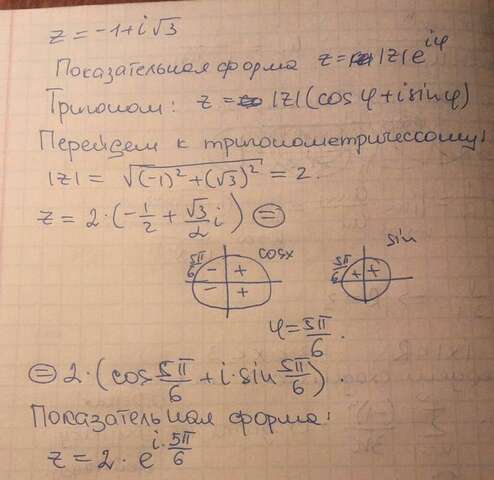 z = -1+i√3
Показательная форма z = |z|e^{iφ}
Тригоном: z = |z|(cosφ + isinφ)
Перейдем к тригонометрическому:
|z| = √((-1)² + (√3)²) = 2.
z = 2·(-1/2 + √3/2 i) ⊜
cosx sin
5π/6 - + 5π/6 + +
- +
φ = 5π/6.
⊜ 2·(cos 5π/6 + i·sin 5π/6).
Показательная форма:
z = 2·e^{i·5π/6}